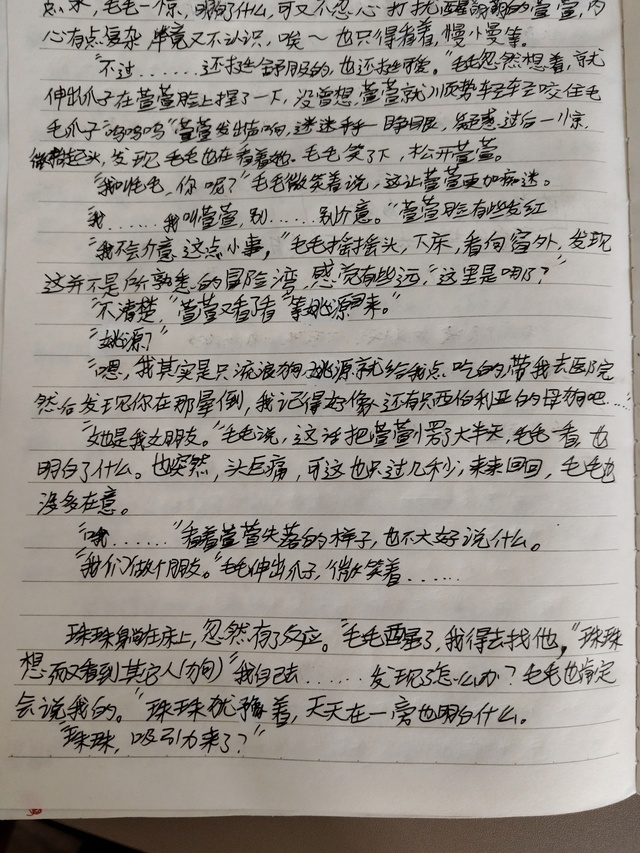 点，来，毛毛一惊，明白了什么，可又不忍心打扰醒萱萱，内
心有点复杂，毕竟又不认识，唉～也只得看着，慢慢等。
"不过.......还挺舒服的，也还挺可爱。"毛毛忽然想着，就
伸出爪子在萱萱脸上捏了一下，没曾想，萱萱就顺势轻轻咬住毛
毛爪子"呜呜呜"萱萱发出声响，迷迷乎乎睁眼，疑惑过后一惊，
微抬起头，发现毛毛也在看着她，毛毛笑了下，松开萱萱。
"我叫毛毛，你呢？"毛毛微笑着说，这让萱萱更加痴迷。
"我.......我叫萱萱，别......别介意。"萱萱脸有些发红
"我不会介意这点小事，"毛毛摇摇头，下床，看向窗外，发现
这并不是所熟悉的冒险湾，感觉有些远，"这里是哪了？"
"不清楚，"萱萱又看了看"等姚源回来。"
"姚源？"
"嗯，我其实是只流浪狗，姚源就给我点吃的，带我去医院
然后发现你在那晕倒，我记得好像还有只西伯利亚的母狗吧......
"她是我女朋友。"毛毛说，这话把萱萱罢了大半天，毛毛一看，也
明白了什么。也突然，头巨痛，可这也只过几秒，来来回回，毛毛也
没多在意。
"哦......."看着萱萱失落的样子，也不大好说什么。
"我们做个朋友。"毛毛伸出爪子，微笑着.......
珠珠躺在床上，忽然有了反应。"毛毛醒了，我得去找他，"珠珠
想，而又看到其它人(狗)"我自己去.......发现了怎么办？毛毛也肯定
会说我的。"珠珠犹豫着，天天在一旁也明白什么。
"珠珠，吸引力来了？"